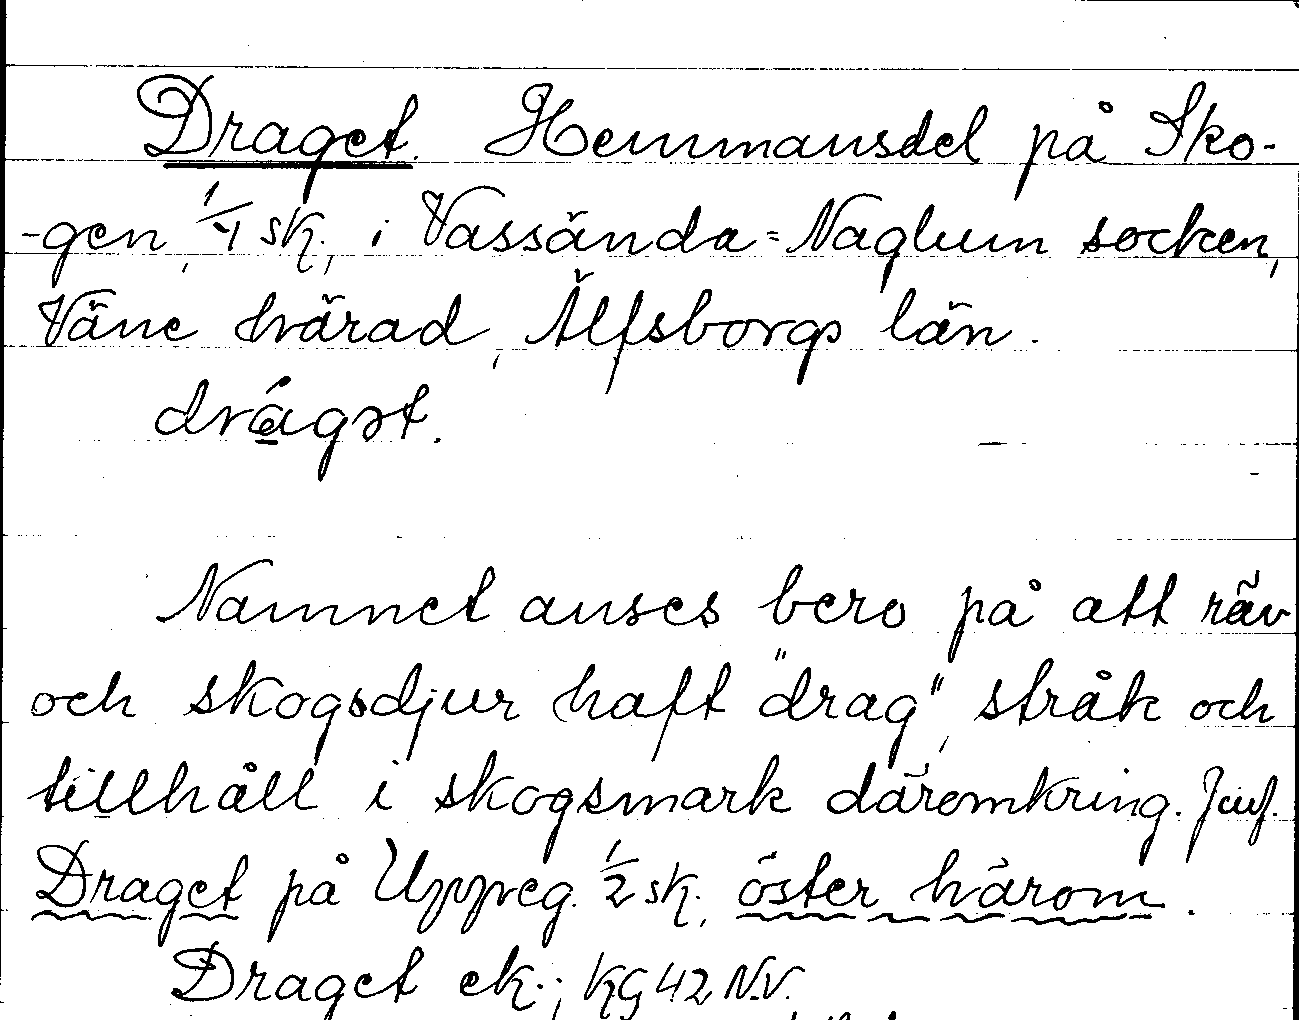 Draget. Hemmansdel på Sko-
-gen, 1/4 sk., i Vassända=Naglum socken,
Väne härad, Älfsborgs län.
drágət.
Namnet anses bero på att räv
och skogsdjur haft "drag", stråk och
tillhåll i skogsmark däromkring. Jmf.
Draget på Uppveg. 1/2 sk., öster härom.
Draget ek.; KG 42 N.V.